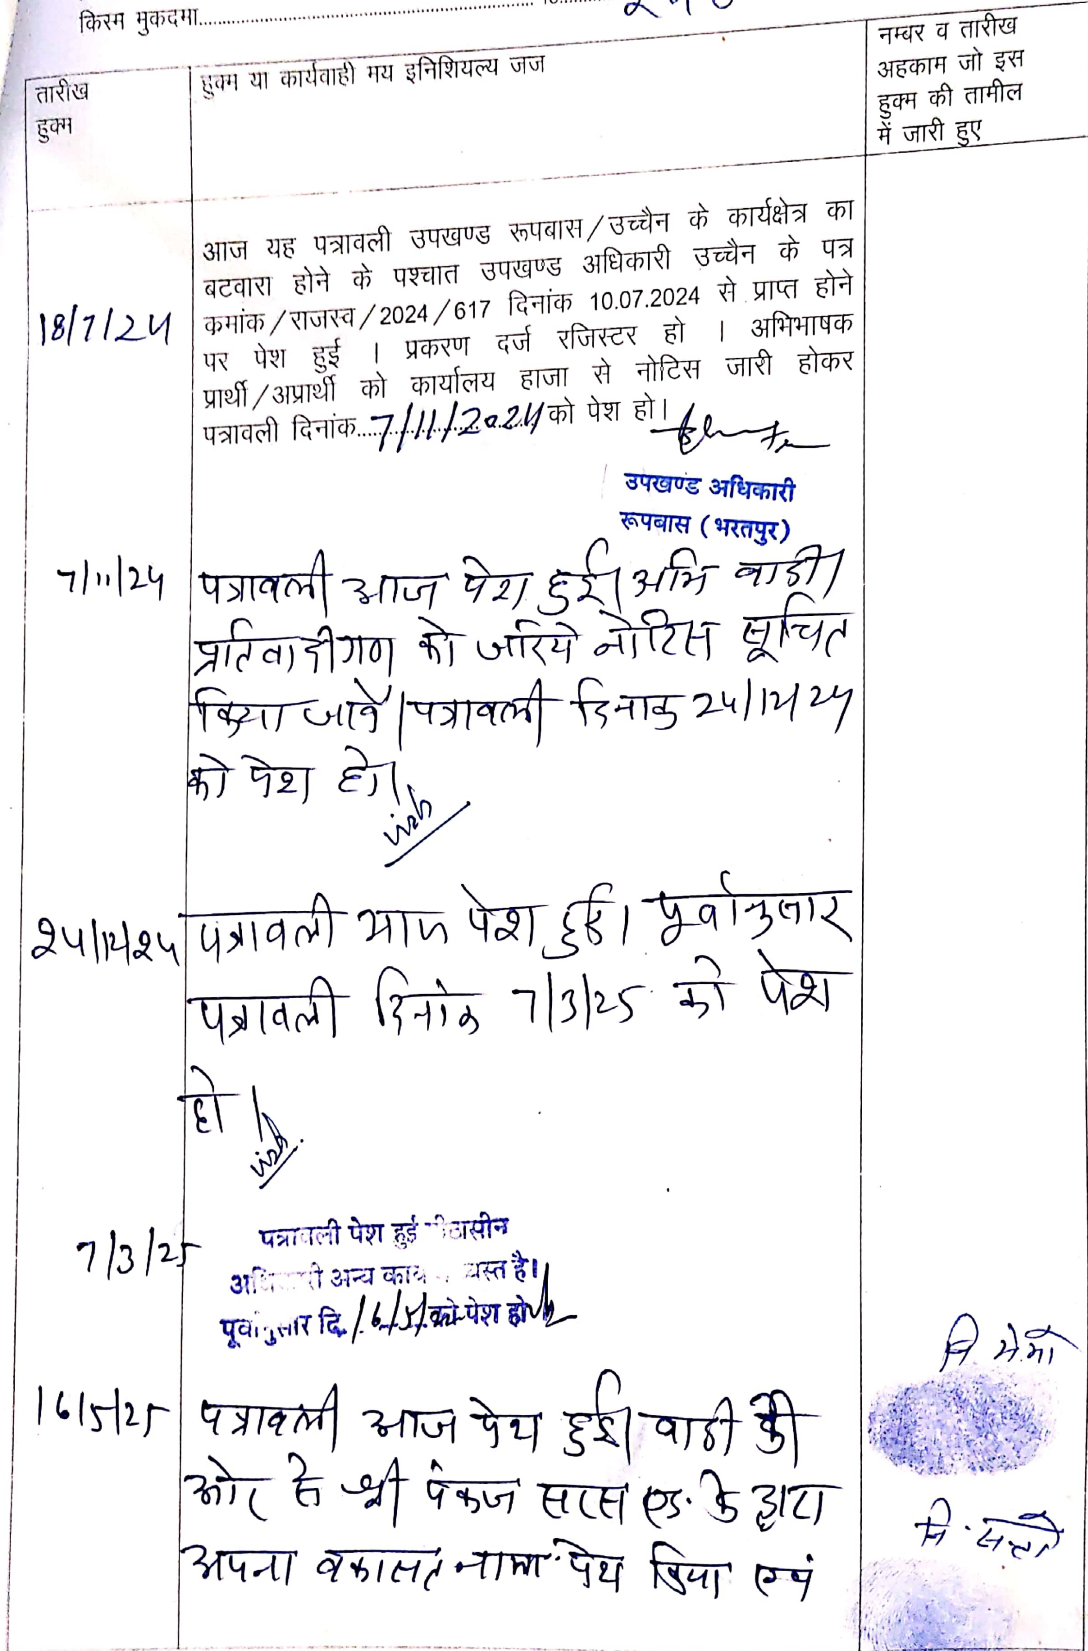 किस्म मुकदमा
तारीख
हुक्म
हुक्म या कार्यवाही मय इनिशियल्य जज
नम्बर व तारीख
अहकाम जो इस
हुक्म की तामील
में जारी हुए
18/7/24
आज यह पत्रावली उपखण्ड रूपबास/उच्चैन के कार्यक्षेत्र का
बटवारा होने के पश्चात उपखण्ड अधिकारी उच्चैन के पत्र
कमांक/राजस्व/2024/617 दिनांक 10.07.2024 से प्राप्त होने
पर पेश हुई । प्रकरण दर्ज रजिस्टर हो । अभिभाषक
प्रार्थी/अप्रार्थी को कार्यालय हाजा से नोटिस जारी होकर
पत्रावली दिनांक 7/11/2024 को पेश हो।
उपखण्ड अधिकारी
रूपबास (भरतपुर)
7/11/24 पत्रावली आज पेश हुई। अभि वादी/
प्रतिवादीगण को जरिये नोटिस सूचित
किया जावें। पत्रावली दिनाक 24/12/24
को पेश हो।
24/12/24 पत्रावली आज पेश हुई। पूर्वानुसार
पत्रावली दिनांक 7/3/25 को पेश
हो।
7/3/25 पत्रावली पेश हुई पीठासीन
अधिकारी अन्य कार्य व्यस्त है।
पूर्वानुसार दि. 16/5/ को पेश हो
16/5/25 पत्रावली आज पेश हुई। वादी की
ओर से श्री पंकज सारस एड. के द्वारा
अपना वकालत नामा पेश किया एवं
नि
नि.